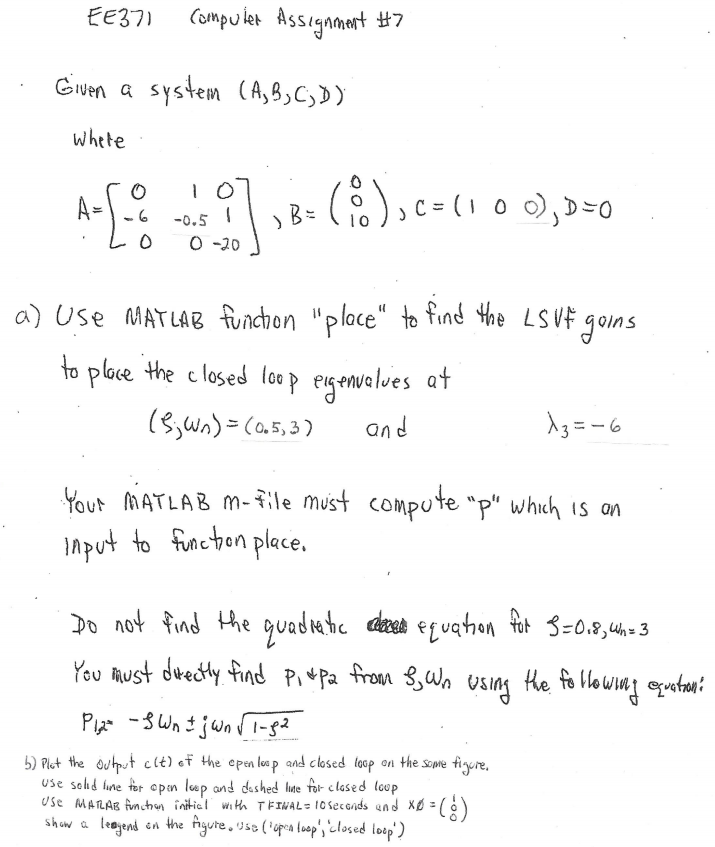 EE371 Computer Assignment #7
Given a system (A,B,C,D)
where
A=[0 1 0
-6 -0.5 1
0 0 -20], B= (0
0
10), C=(1 0 0), D=0
a) Use MATLAB function "place" to find the LSVF gains
to place the closed loop eigenvalues at
(ζ,ωn)=(0.5,3) and λ3=-6
Your MATLAB m-file must compute "p" which is an
input to function place.
Do not find the quadratic equation for ζ=0.8,ωn=3
You must directly find p1 & p2 from ζ,ωn using the following equation:
P1,2= -ζωn ± jωn√1-ζ²
b) Plot the output c(t) of the open loop and closed loop on the same figure.
Use solid line for open loop and dashed line for closed loop
Use MATLAB function initial with TFINAL=10 seconds and X0=(1
0
0)
show a leagend on the figure. Use ('open loop','closed loop')